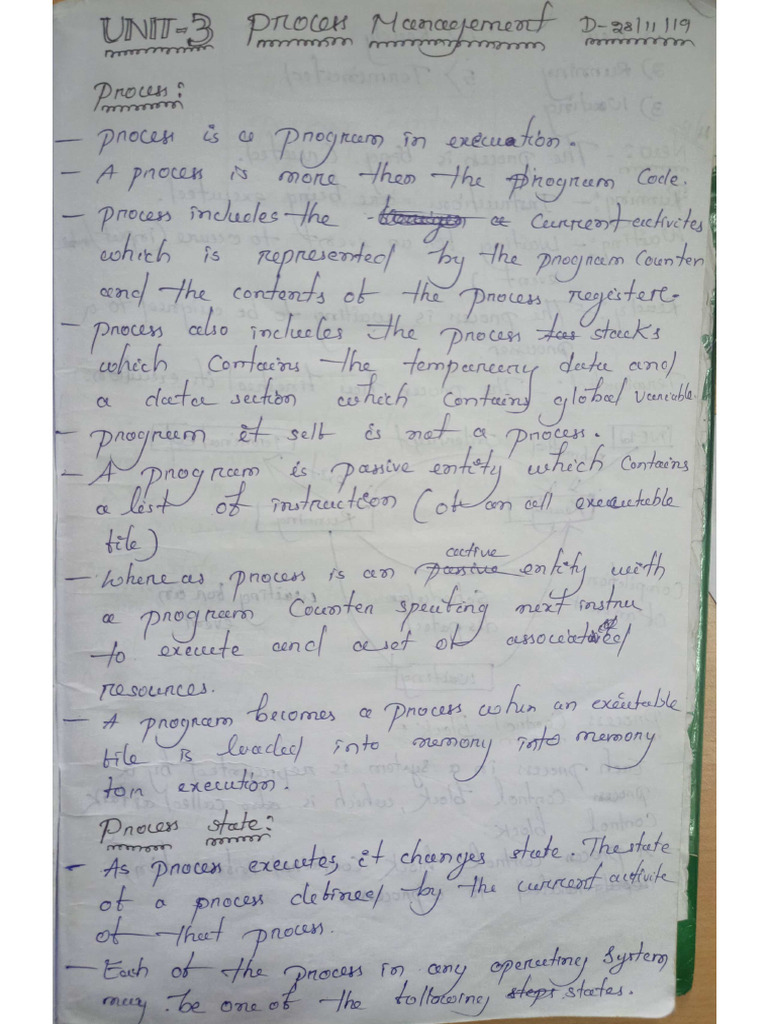 UNIT-3 Process Management D-28/11/19
Process:
- process is a program in execuation.
- A process is more then the program Code.
- process includes the current activites
which is represented by the program counter
and the contents of the process register.
- process also includes the process stacks
which contains the temparary data and
a data section which contains global variable.
- program it self is not a process.
- A program is passive entity which contains
a list of instruction (of an call executable
file)
- Where as process is an active entity with
a program counter speciting next instru
to execute and a set of associated
resources.
- A program becomes a process whin an executable
file is loaded into memory into memory
for execution.
Process state:
- As process executes, it changes state. The state
of a process defined by the current activite
of that process.
- Each of the process in any operating system
may be one of the following states.